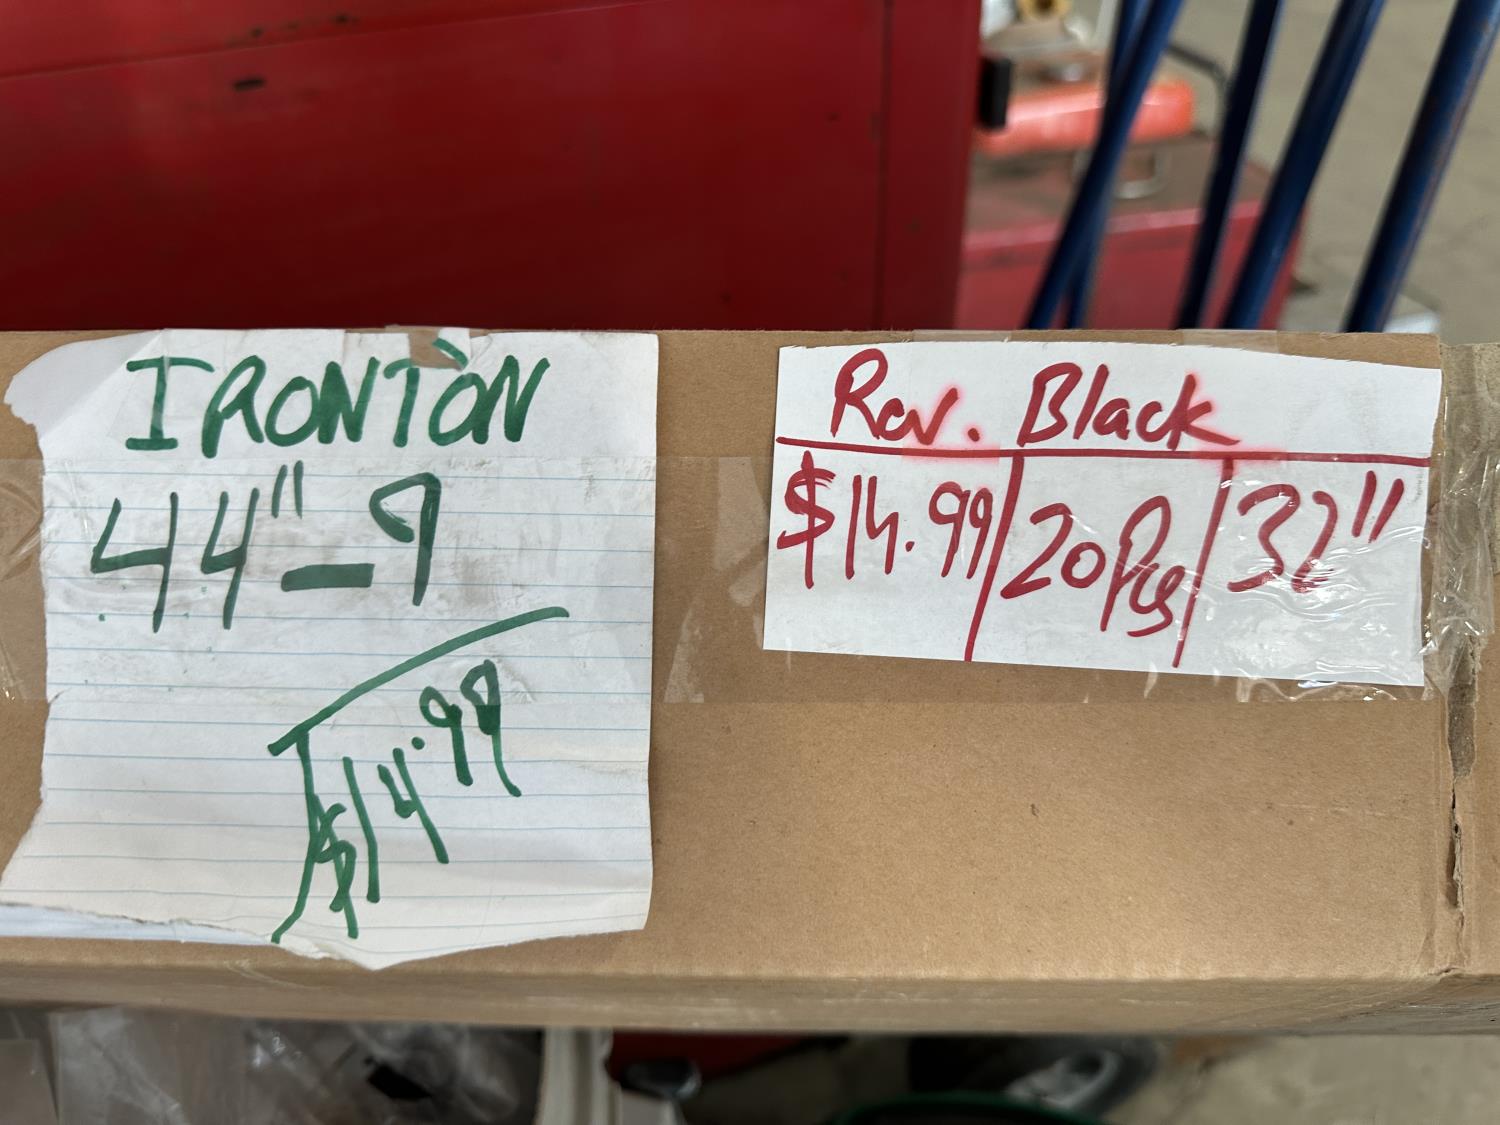 IRONTON
44"-9
$14.99
Rev. Black
$14.99 20 Pcs 32"